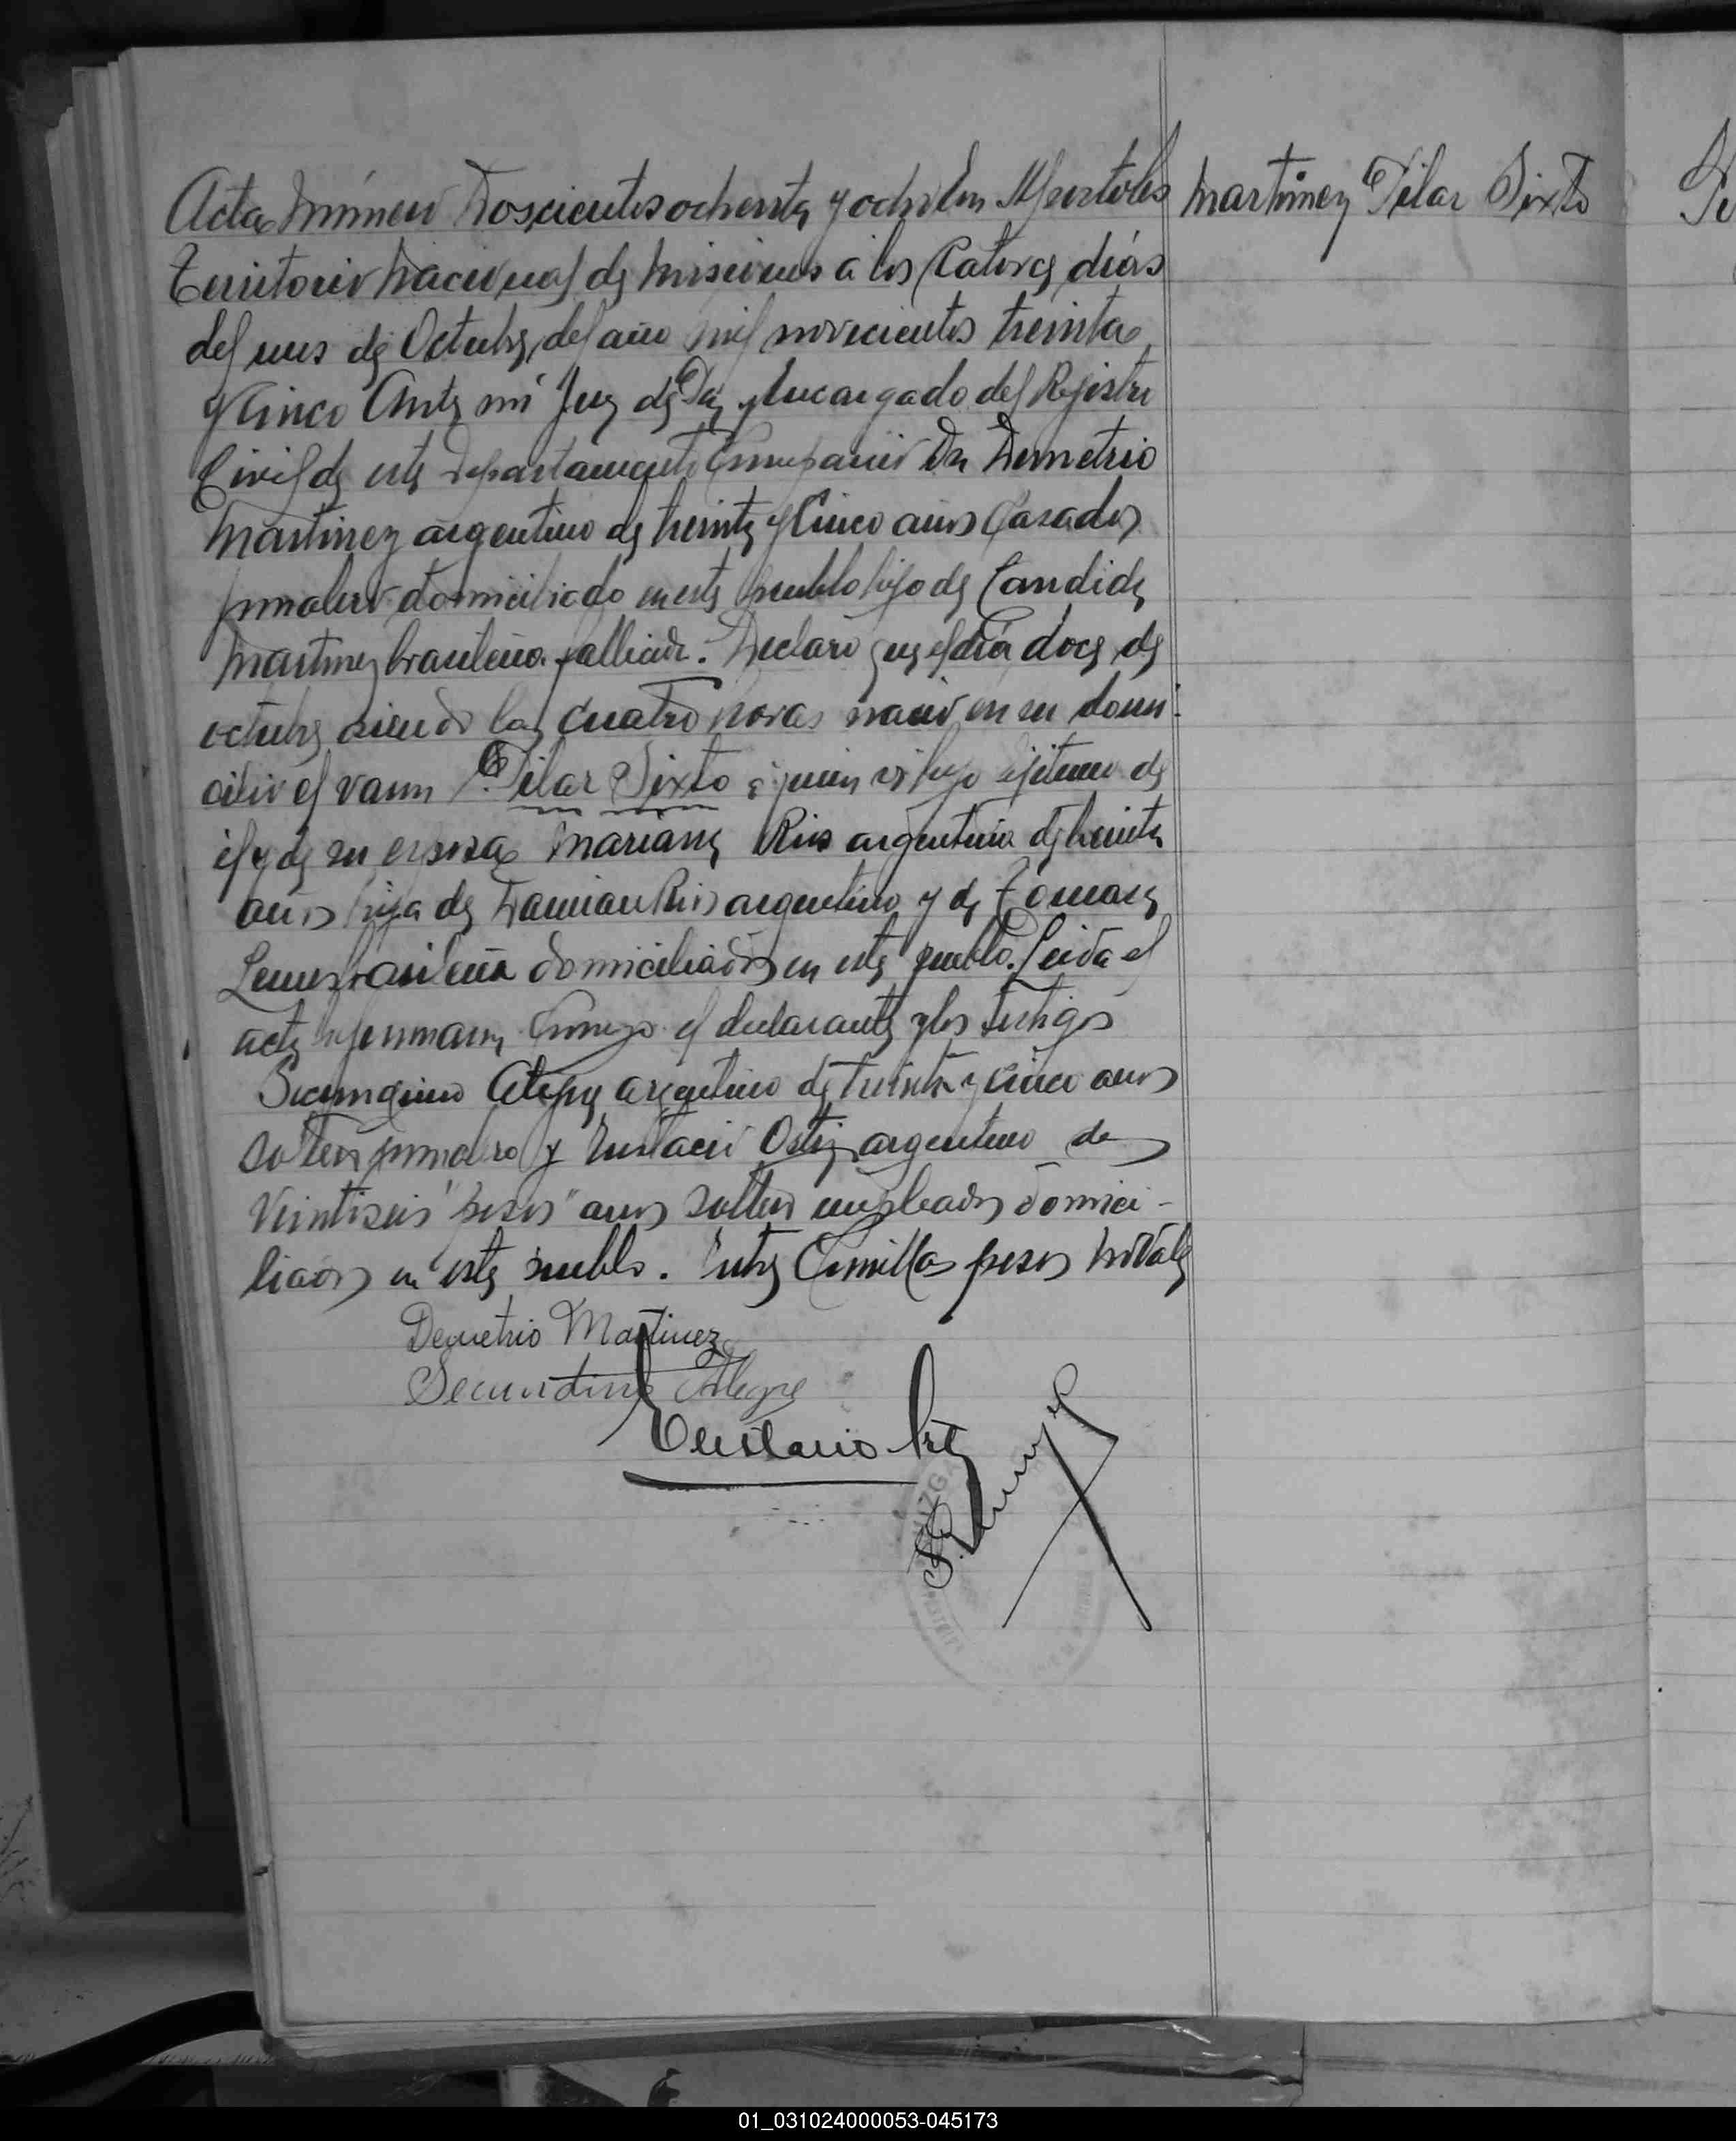 Acta Número Doscientos ochenta y ocho En Apostoles
Martinez Pilar Sixto
Territorio Nacional de Misiones a los Catorce dias
del mes de Octubre del año mil novecientos treinta
y Cinco Ante mi Juez de Paz y Encargado del Rejistro
Civil de este Departamento Compareció Dn Demetrio
Martinez argentino de treinta y Cinco años Casado
jornalero domiciliado en este pueblo hijo de Candida
Martinez brasileña fallecida. Declaró que el día doce de
octubre siendo las cuatro horas nació en su domi-
cilio el varon Pilar Sixto quien es hijo lejitimo de
el y de su esposa Mariana Rios argentina de treinta
años hija de Damian Rios argentino y de Tomasa
Lemes brasileña domiciliados en este pueblo. Leida el
acta la firmaron Conmigo el declarante y los testigos
Secundino Alegre argentino de treinta y cinco años
soltero jornalero y Eustacio argentino de
Veintiseis "pesos" años soltero empleado domici-
liados en este pueblo. Entre Comillas pesos No Vale
Demetrio Martinez
Secundino Alegre
Eustacio
JUZG